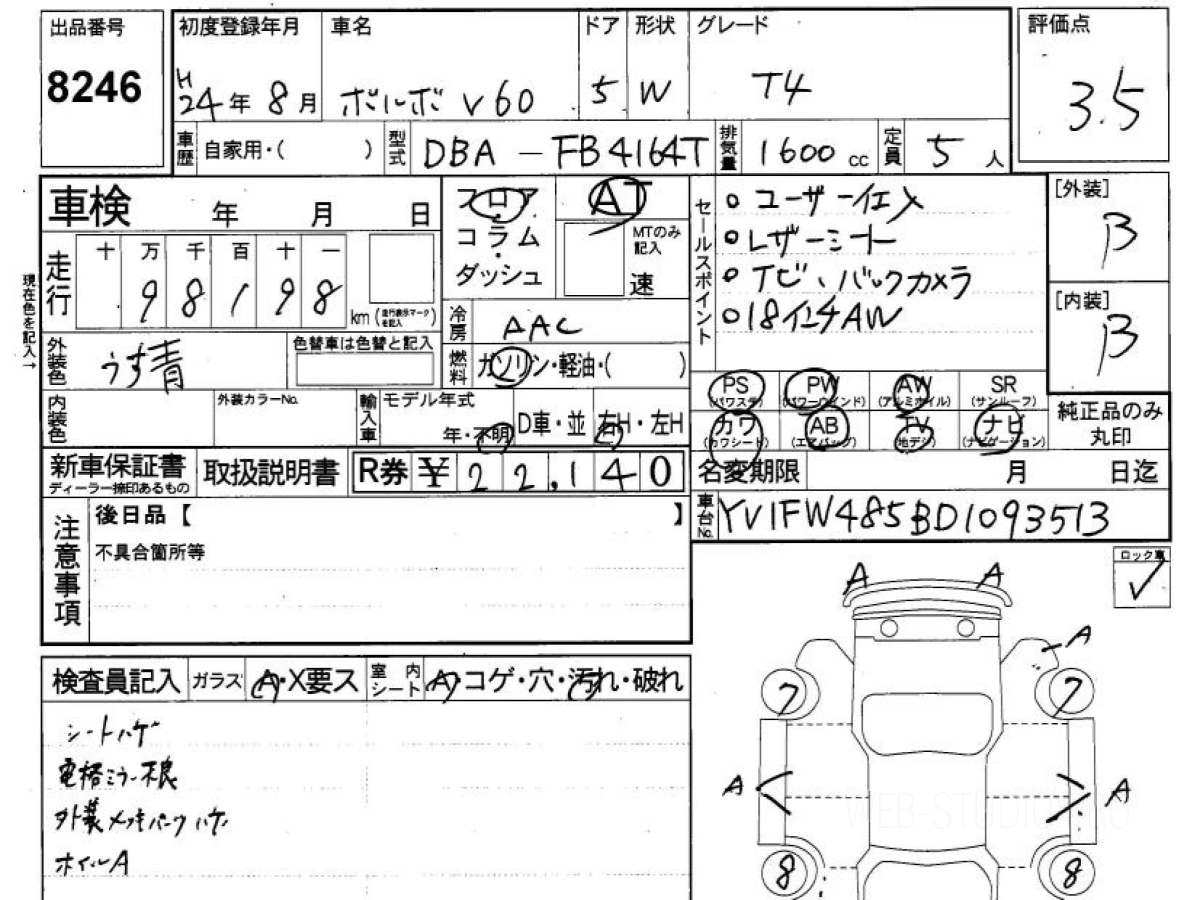 出品番号
8246
初度登録年月
H24年8月
車名
ボルボ V60
ドア
5
形状
W
グレード
T4
評価点
3.5
車歴 自家用・( )
型式 DBA-FB4164T
排気量 1600cc
定員 5人
車検 年 月 日
フロア
コラム
ダッシュ
AT
MTのみ記入
速
セールスポイント
ユーザー仕入
レザーシート
ナビ、バックカメラ
18インチAW
[外装]
B
[内装]
B
現在色を記入→
走行 十 万 千 百 十 一
98198 km (走行表示マークを記入)
冷房 AAC
燃料 ガソリン・軽油・( )
外装色 うす青
色替車は色替と記入
内装色
外装カラーNo.
輸入車
モデル年式
年・不明
D車・並
右H・左H
PS (パワステ)
PW (パワーウインド)
AW (アルミホイル)
SR (サンルーフ)
カワ (カワシート)
AB (エアバッグ)
TV (地デジ)
ナビ (ナビゲーション)
純正品のみ丸印
新車保証書
ディーラー捺印あるもの
取扱説明書
R券 ¥22,140
名変期限 月 日迄
車台No. YV1FW485BD1093513
注意事項
後日品【 】
不具合箇所等
ロック車
✓
検査員記入
ガラス A・X要ス
室内シート A・コゲ・穴・汚れ・破れ
シートハゲ
電格ミラー不良
外装メッキパーツハゲ
ホイルA
A A
A
7 7
A A
8 8
WEB-STUDIO.RU